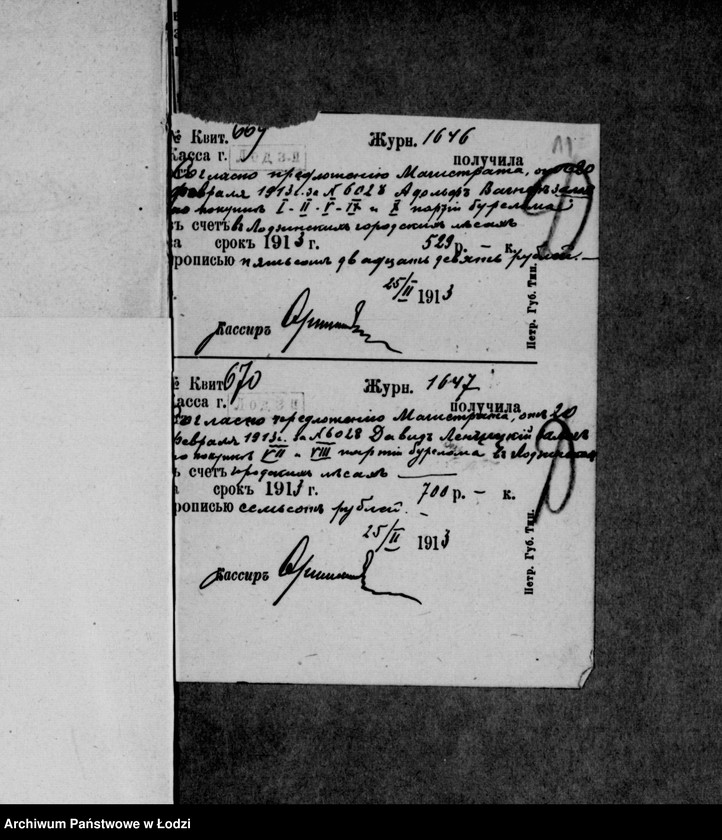 № Квит. 669 Журн. 1646
Касса г. Лодзи получила
Согласно предложенію Магистрата, отъ 20
февраля 1913 г. за № 6028 Адольфъ Вагнеръ
по покупкѣ I - II - V - и X партіи бурелома
въ счетъ въ Лодзинскихъ городскихъ лѣсахъ
за срокъ 1913 г. 529 р. — к.
прописью пятьсотъ двадцать девять рублей. —
25/II 1913
Кассиръ
Петр. Губ. Тип.
№ Квит. 670 Журн. 1647
Касса г. Лодзи получила
Согласно предложенію Магистрата, отъ 20
февраля 1913 г. за № 6028 Давидъ
по покупкѣ VII и VIII партіи бурелома въ Лодзинскихъ
въ счетъ городскихъ лѣсахъ
за срокъ 1913 г. 700 р. — к.
прописью семьсотъ рублей. —
25/II 1913
Кассиръ
Петр. Губ. Тип.
Archiwum Państwowe w Łodzi